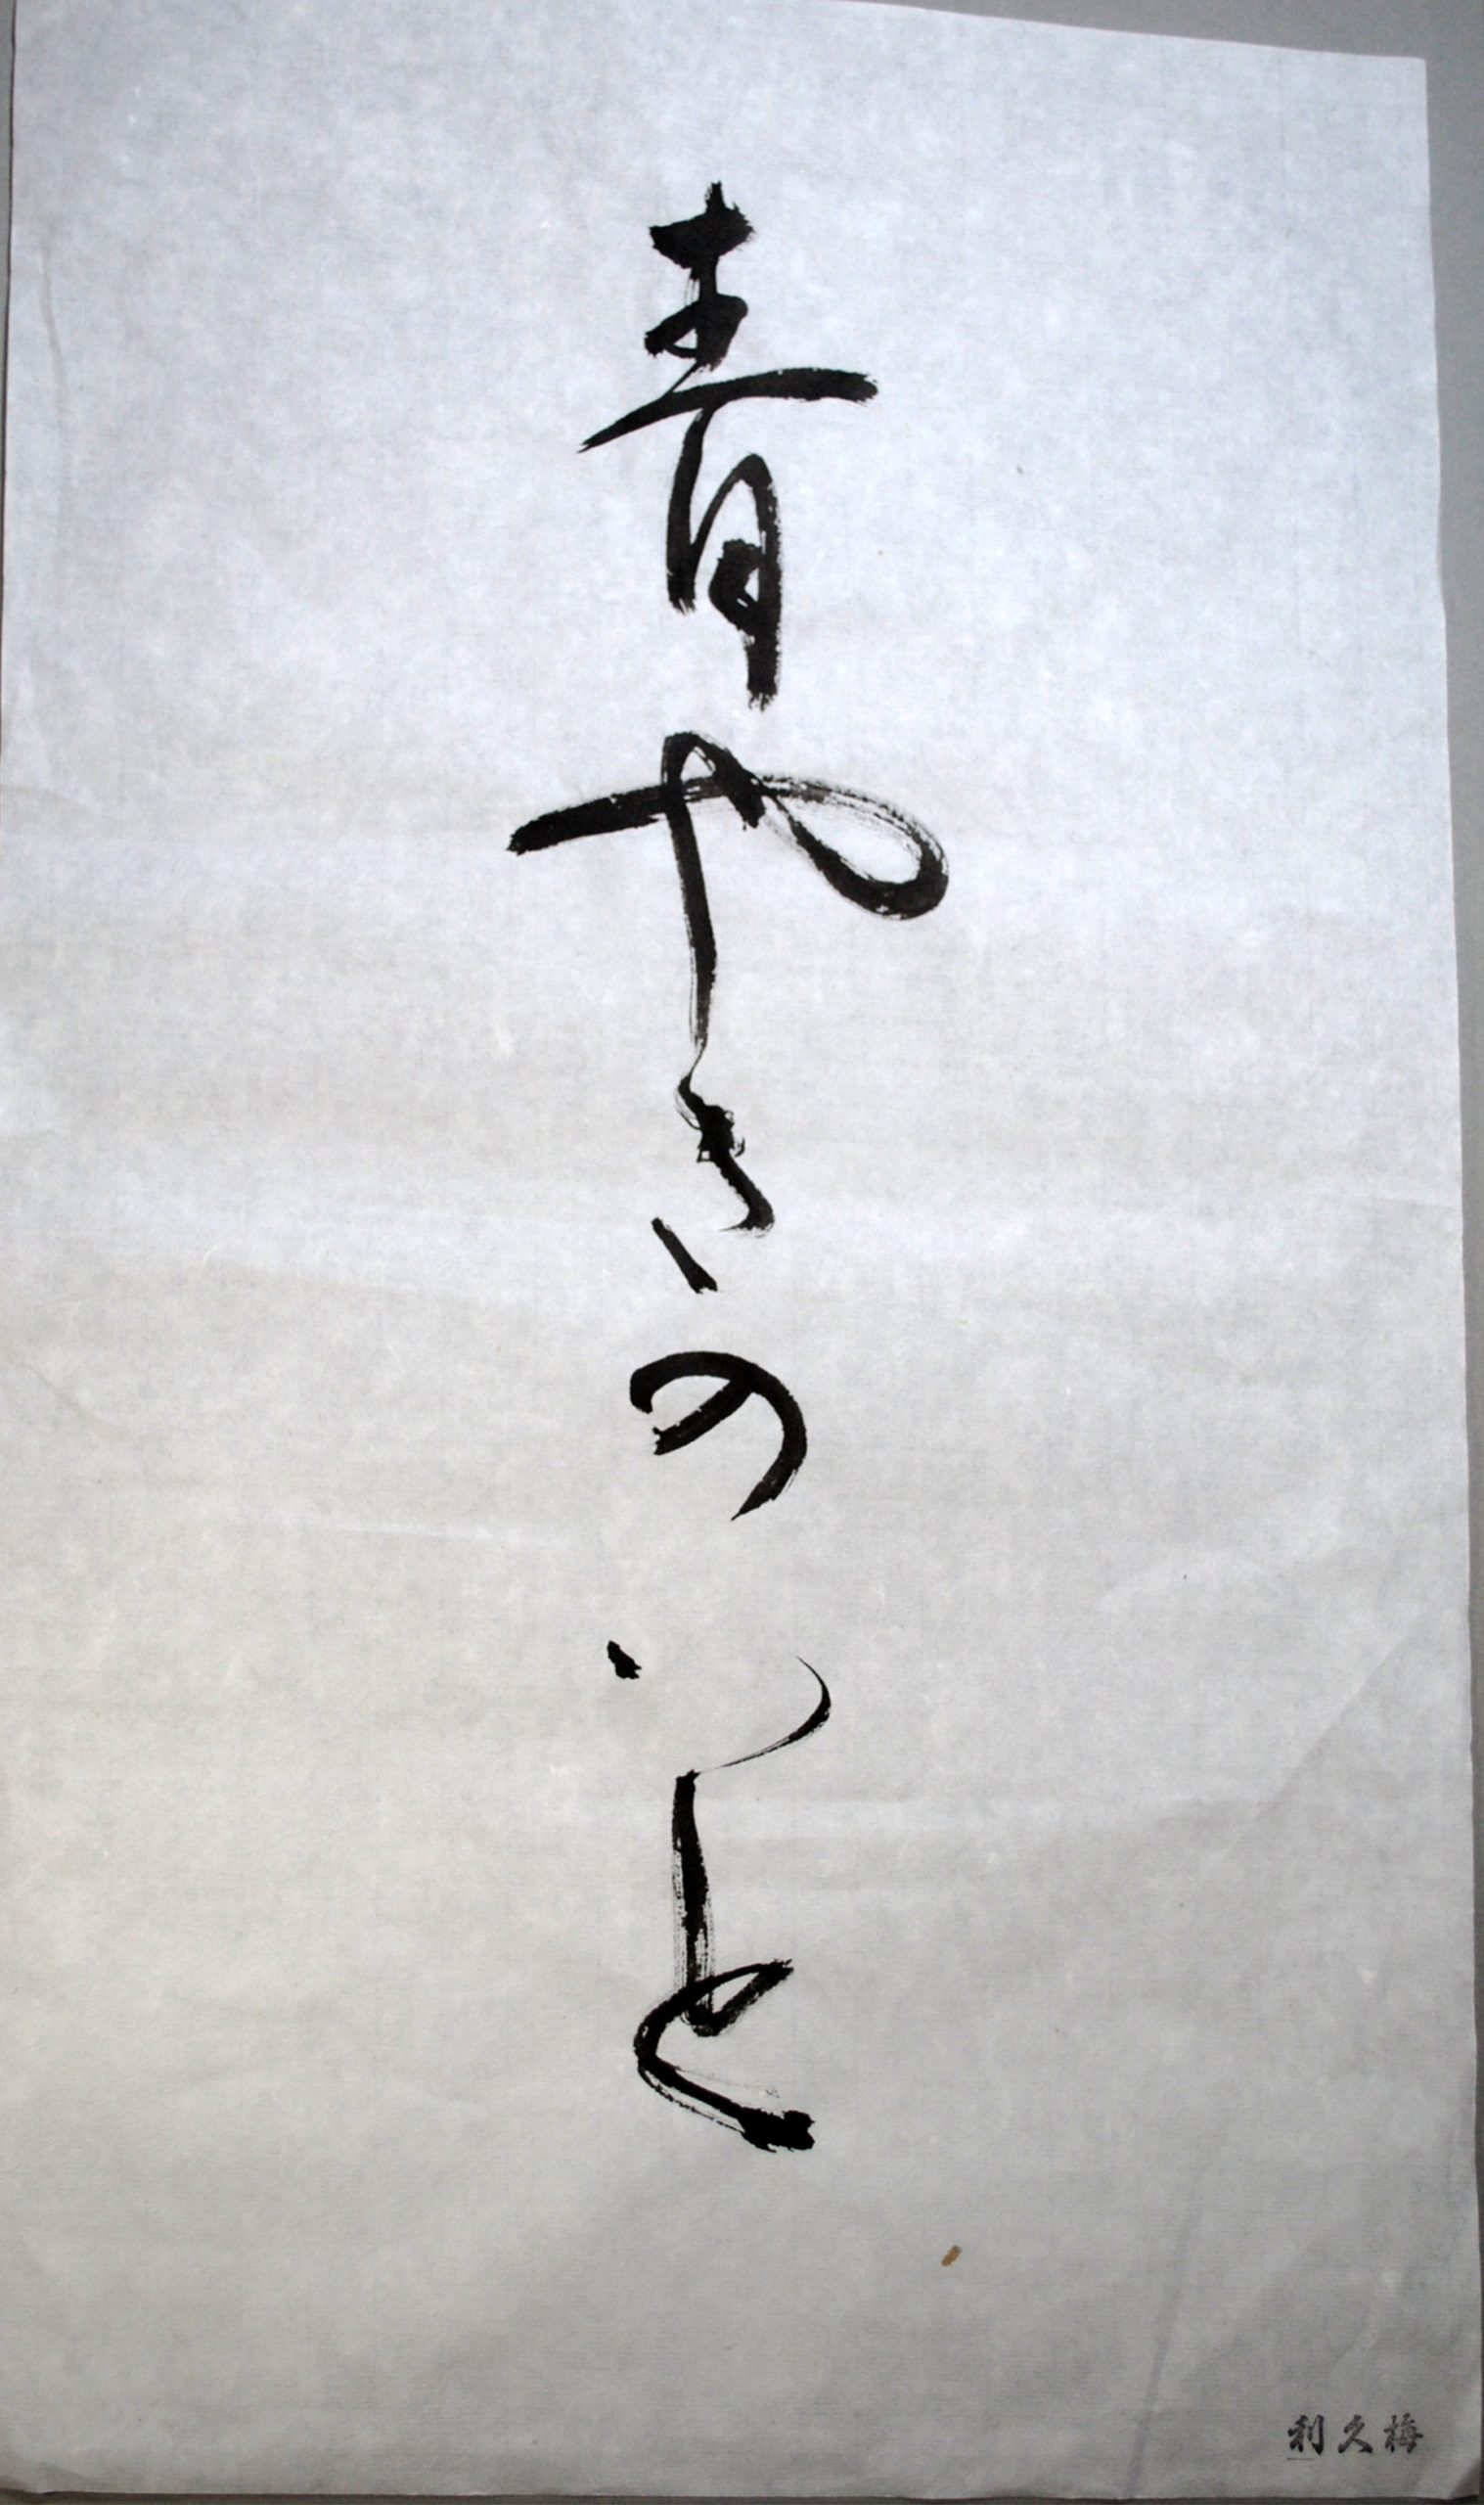 青やきのいと
利久梅